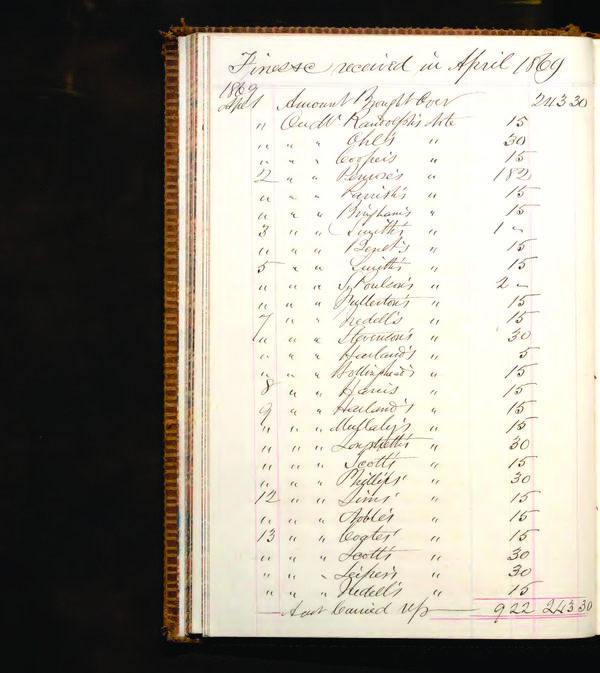 Fines &c received in April 1869
1869
April 1 Amount Brought Over 243 30
" On W Randolph's Note 15
" " " Ohl's " 30
" " " Cooper's " 15
2 " " Penrose's " 182
" " " Parrish's " 15
" " " Bingham's " 15
3 " " Smith's " 1 "
" " " Benet's " 15
5 " " Smith's " 15
" " " Poulson's " 2 "
" " " Fullerton's " 15
7 " " Nedell's " 15
" " " Stevenson's " 30
" " " Harland's " 5
" " " Hollinshead's " 15
8 " " Harris " 15
9 " " Harland's " 15
" " " 15
" " " Longstreth's " 30
" " " Scott's " 15
" " " Phillips' " 30
12 " " Sims' " 15
" " " Noble's " 15
13 " " Coates' " 15
" " " Scott's " 30
" " " Leiper's " 30
" " " Nedell's " 15
Amt Carried up 9 22 243 30